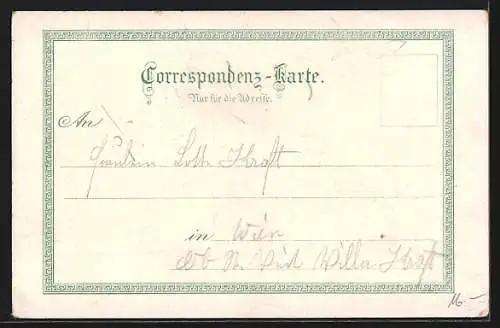 Correspondenz-Karte.
Nur für die Adresse.
An
Fräulein Lotte Kraft
in Wien
Villa Kraft
16.-